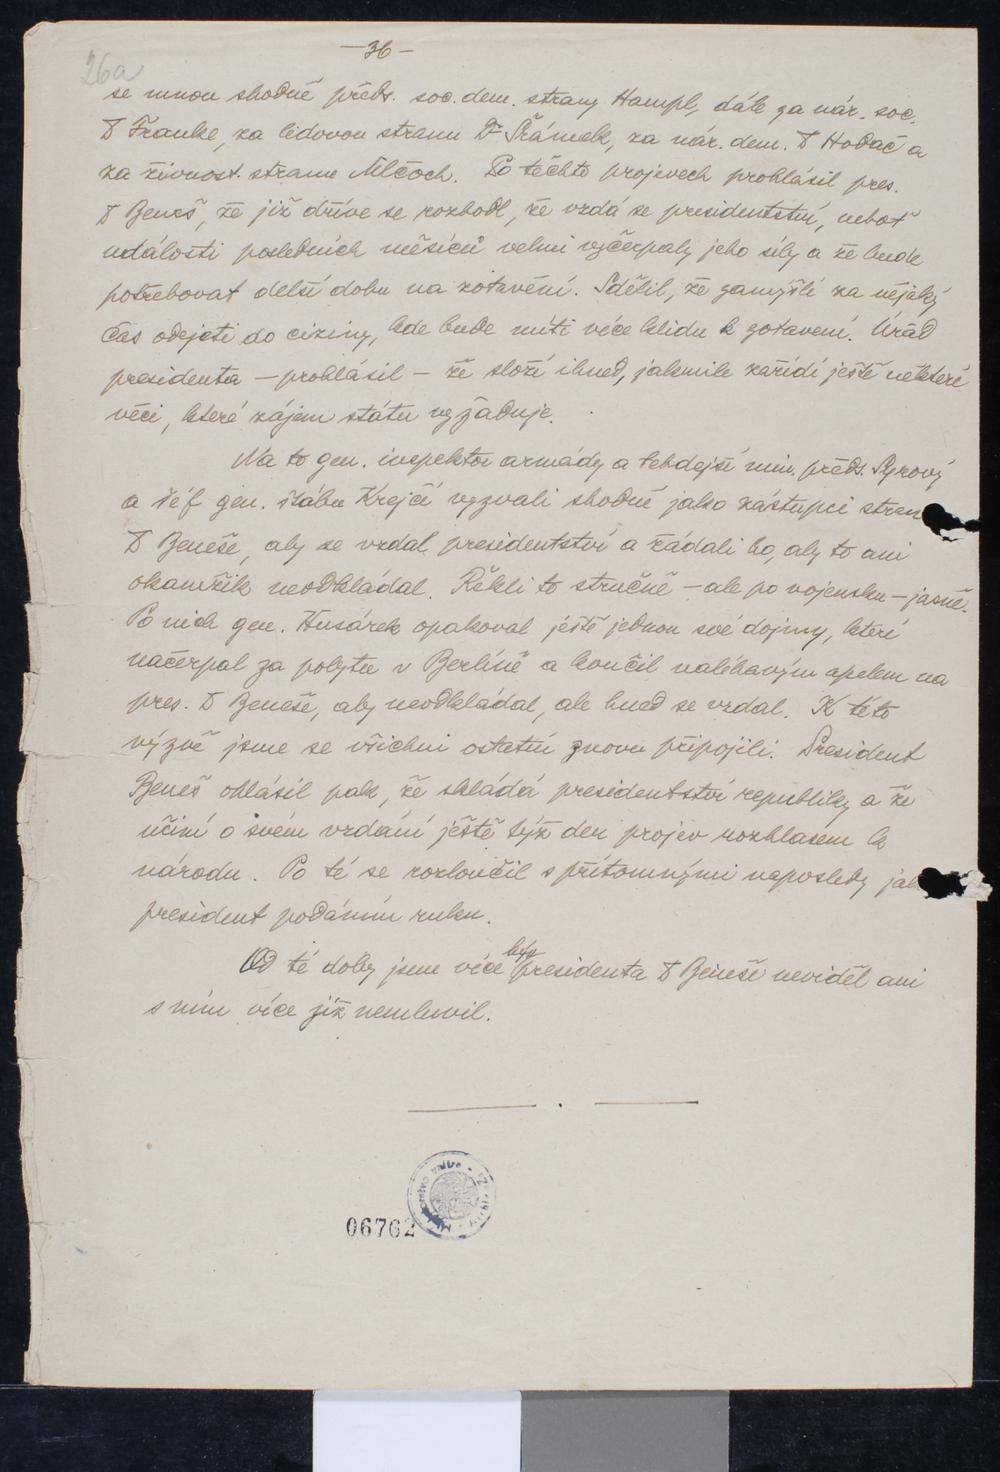 26a
— 36 —
se mnou shodně předs. soc. dem. strany Hampl, dále za nár. soc.
D Franke, za lidovou stranu Dr Šrámek, za nár. dem. D Hodač a
za živnost. stranu Mlčoch. Po těchto projevech prohlásil pres.
D Beneš, že již dříve se rozhodl, že vzdá se presidentství, neboť
události posledních měsíců velmi vyčerpaly jeho síly a že bude
potřebovat delší dobu na zotavení. Sdělil, že zamýšlí na nějaký
čas odejeti do ciziny, kde bude míti více klidu k zotavení. Úřad
presidenta — prohlásil — že složí ihned, jakmile zařídí ještě některé
věci, které zájem státu vyžaduje.
Na to gen. inspektor armády a tehdejší min. předs. Syrový
a šéf gen. štábu Krejčí vyzvali shodně jako zástupci stran
D Beneše, aby se vzdal presidentství a žádali ho, aby to ani
okamžik neodkládal. Řekli to stručně — ale po vojensku — jasně.
Po nich gen. Husárek opakoval ještě jednou své dojmy, které
načerpal za pobytu v Berlíně a končil naléhavým apelem na
pres. D Beneše, aby neodkládal, ale hned se vzdal. K této
výzvě jsme se všichni ostatní znovu připojili. President
Beneš ohlásil pak, že skládá presidentství republiky a že
učiní o svém vzdání ještě týž den projev rozhlasem k
národu. Po té se rozloučil s přítomnými naposledy jak
president podáním ruku.
Od té doby jsem více býv presidenta D Beneše neviděl ani
s ním více již nemluvil.
06762